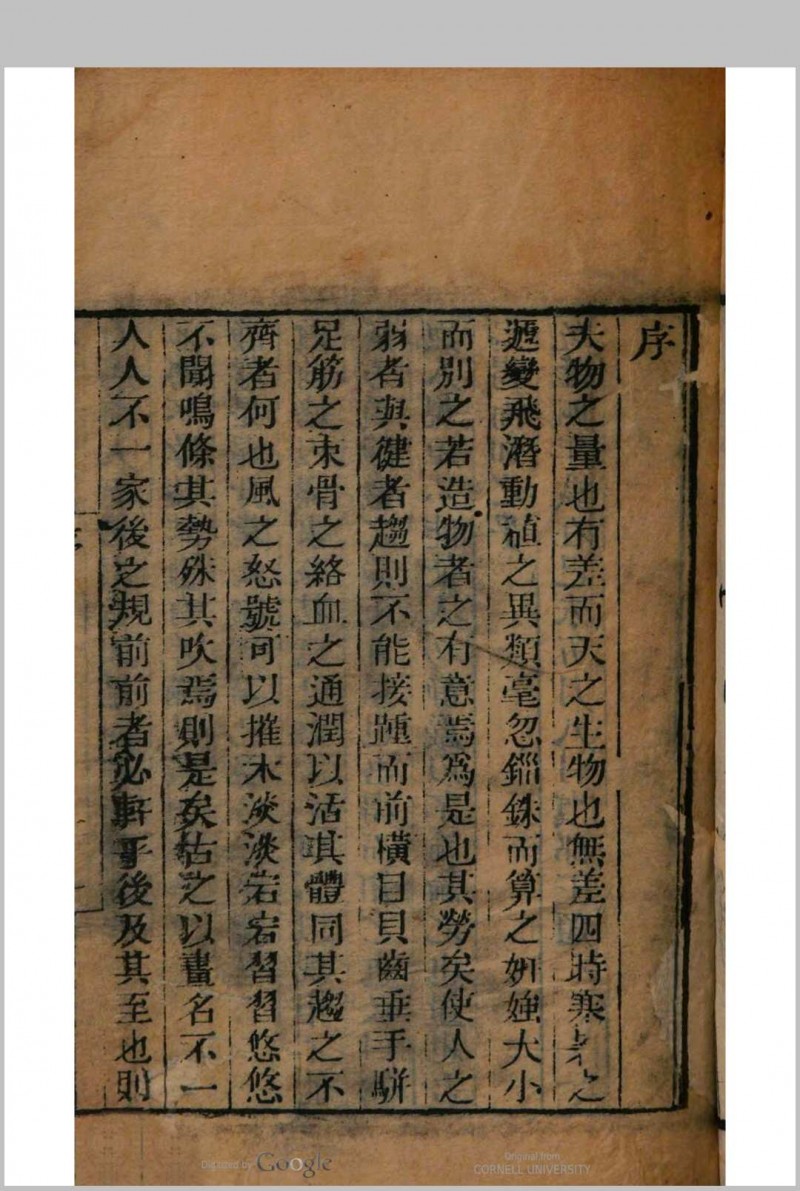 序
夫物之量也有差而天之生物也無差四時寒暑之
遞變飛潛動植之異類毫忽錙銖而算之妍媸大小
而別之若造物者之有意焉爲是也其勞矣使人之
弱者與健者趨則不能接踵而前橫目貝齒垂手駢
足筋之束骨之絡血之通潤以活其體同其趨之不
齊者何也風之怒號可以摧木淡淡宕宕習習悠悠
不聞鳴條其勢殊其吹焉則是矣枯之以畫名不一
人人不一家後之規前前者必軒乎後及其至也則
Digitized by Google
Original from
CORNELL UNIVERSITY